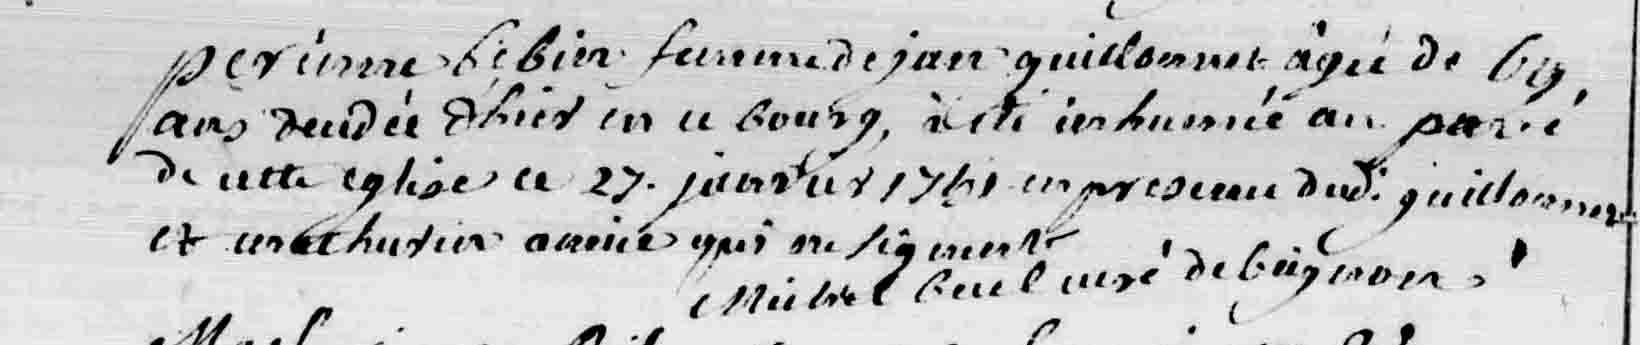 perinne bebin femme de jan guillonnet âgée de 69
ans decedée d'hier en ce bourg, à été inhumée au pavé
de cette eglise ce 27. janvier 1761 en presence dud. guillonnet
et mathurin amice qui ne signent
Michel buel curé de beignon